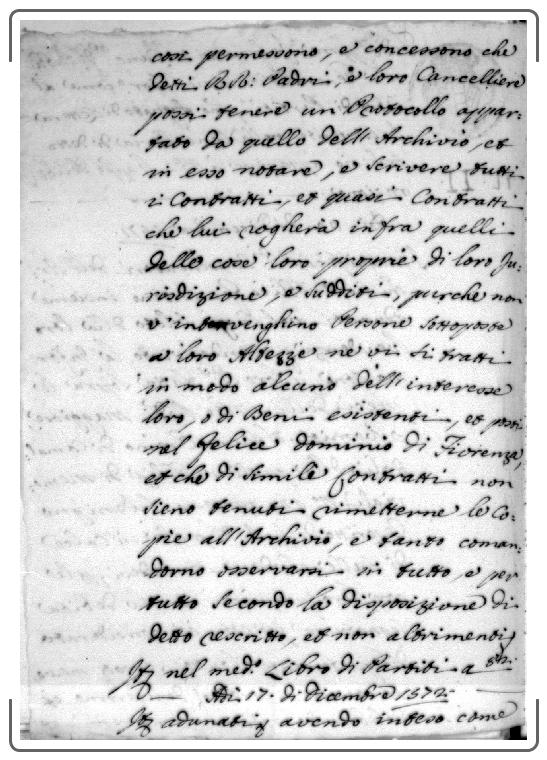 così permessono, e concessono che
detti RR: Padri, e loro Cancelliere
possi tenere un Protocollo appar:
tato da quello dell'Archivio, et
in esso notare, e scrivere tutti
i Contratti, et quasi Contratti
che lui rogherà infra quelli
delle cose loro proprie di loro Ju:
risdizione, e sudditi, purche non
v'intervenghino Persone sottoposte
a loro Altezze ne vi si tratti
in modo alcuno dell'interesse
loro, o di Beni esistenti, et posti
nel felice dominio di Fiorenza,
et che di simile Contratti non
sieno tenuti rimetterne le Co:
pie all'Archivio, e tanto coman:
dorno osservarsi in tutto, e per
tutto secondo la disposizione di
detto rescritto, et non altrimenti
nel med.º Libro di Partiti a
Adi 17. di dicembre 1572:
adunati avendo inteso come